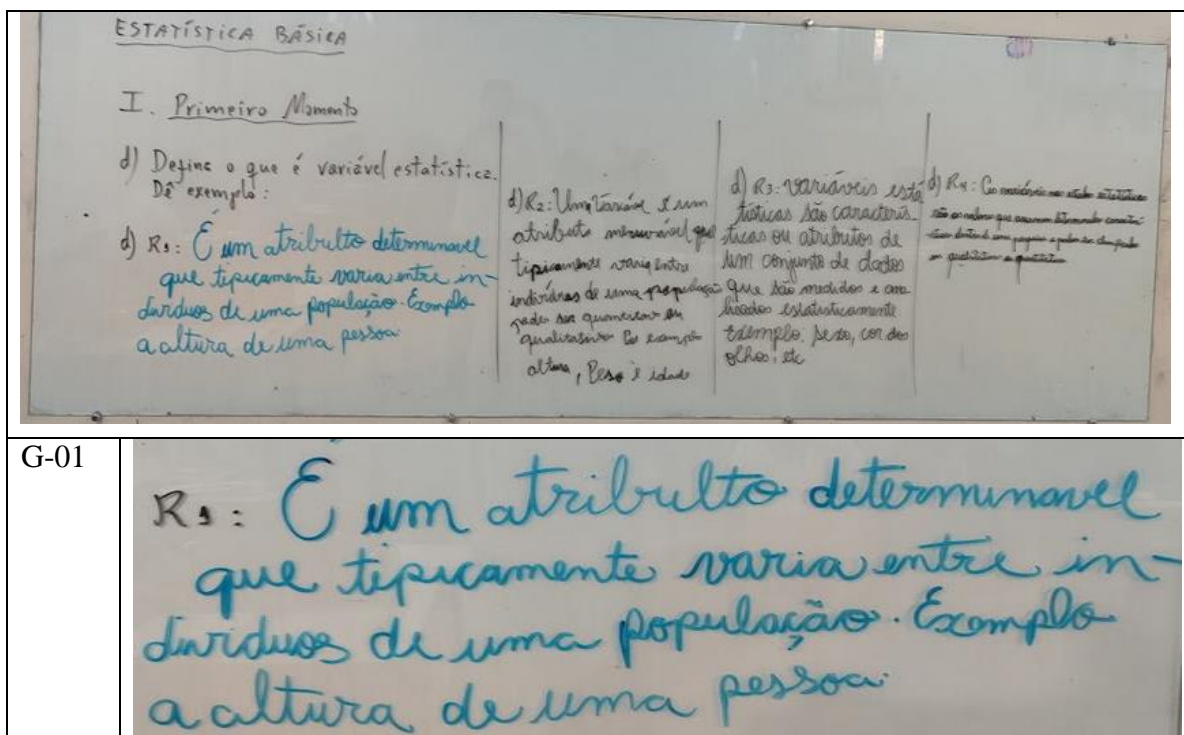 ESTATÍSTICA BÁSICA
I. Primeiro Momento
d) Define o que é variável estatística.
Dê exemplo:
d) R1: É um atribulto determinavel
que tipicamente varia entre in-
dividuos de uma população. Exemplo
a altura de uma pessoa.
d) R2: Uma Variável é um
atributo mensurável que
tipicamente varia entre
individuos de uma população
pode ser ou
qualitativa Por exemplo
altura, Peso e idade
d) R3: Variáveis esta
tísticas são caracterís-
ticas ou atributos de
um conjunto de dados
que são medidos e ana
lisados estatisticamente
Exemplo. Sexo, cor dos
olhos, etc
d) R4: As variáveis
são os valores que
de uma
ou qualitativa e quantitativa
G-01
R1: É um atribulto determinavel
que tipicamente varia entre in-
dividuos de uma população. Exemplo
a altura de uma pessoa.